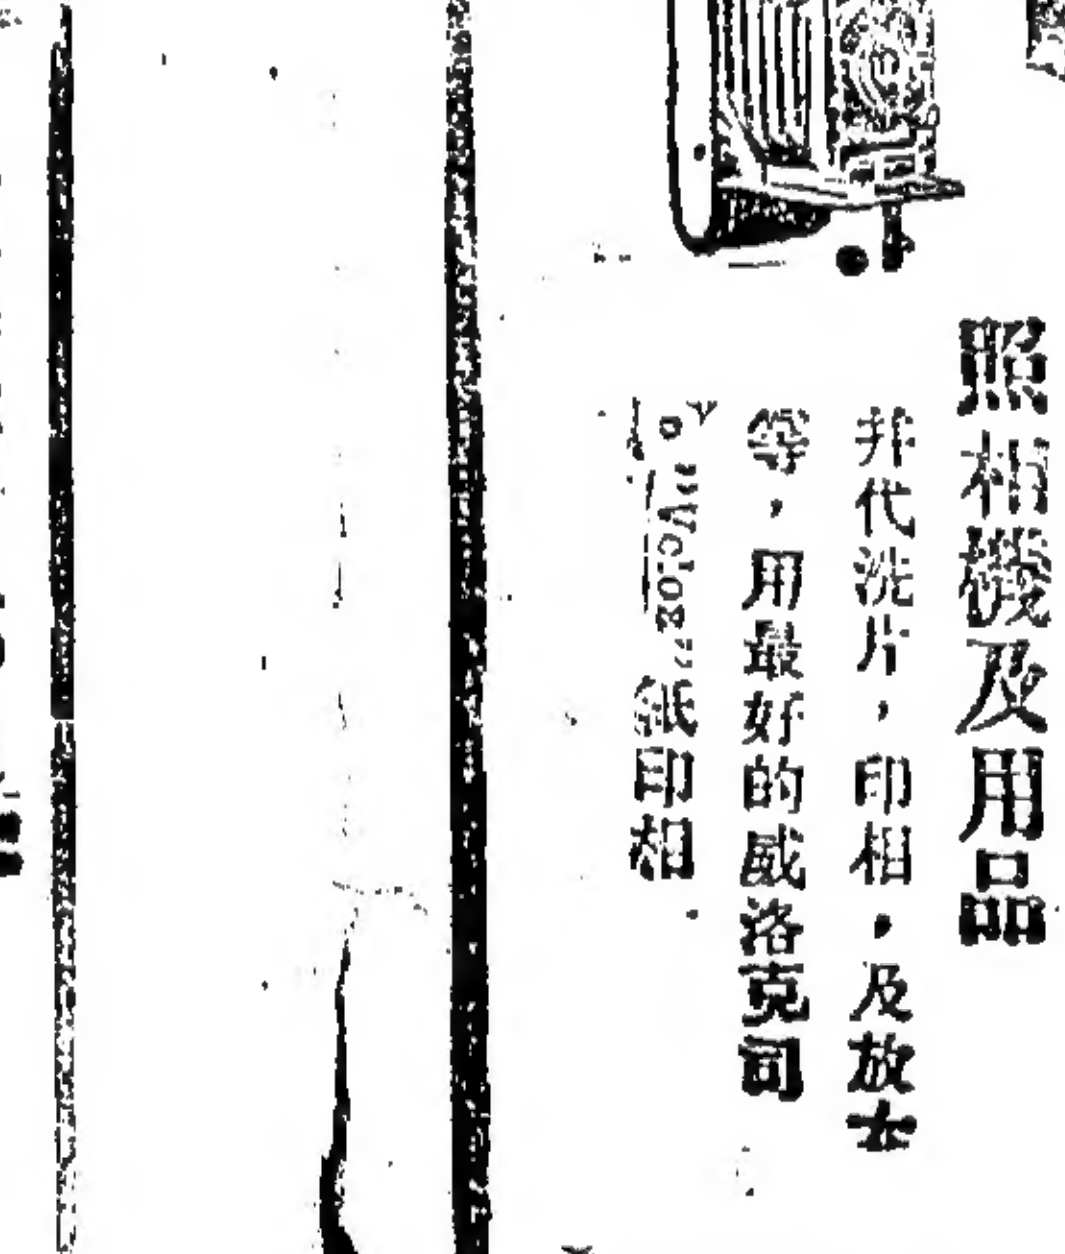 照相機及用品
并代洗片，印相，及放大
等，用最好的威洛克司
"Velox"紙印相